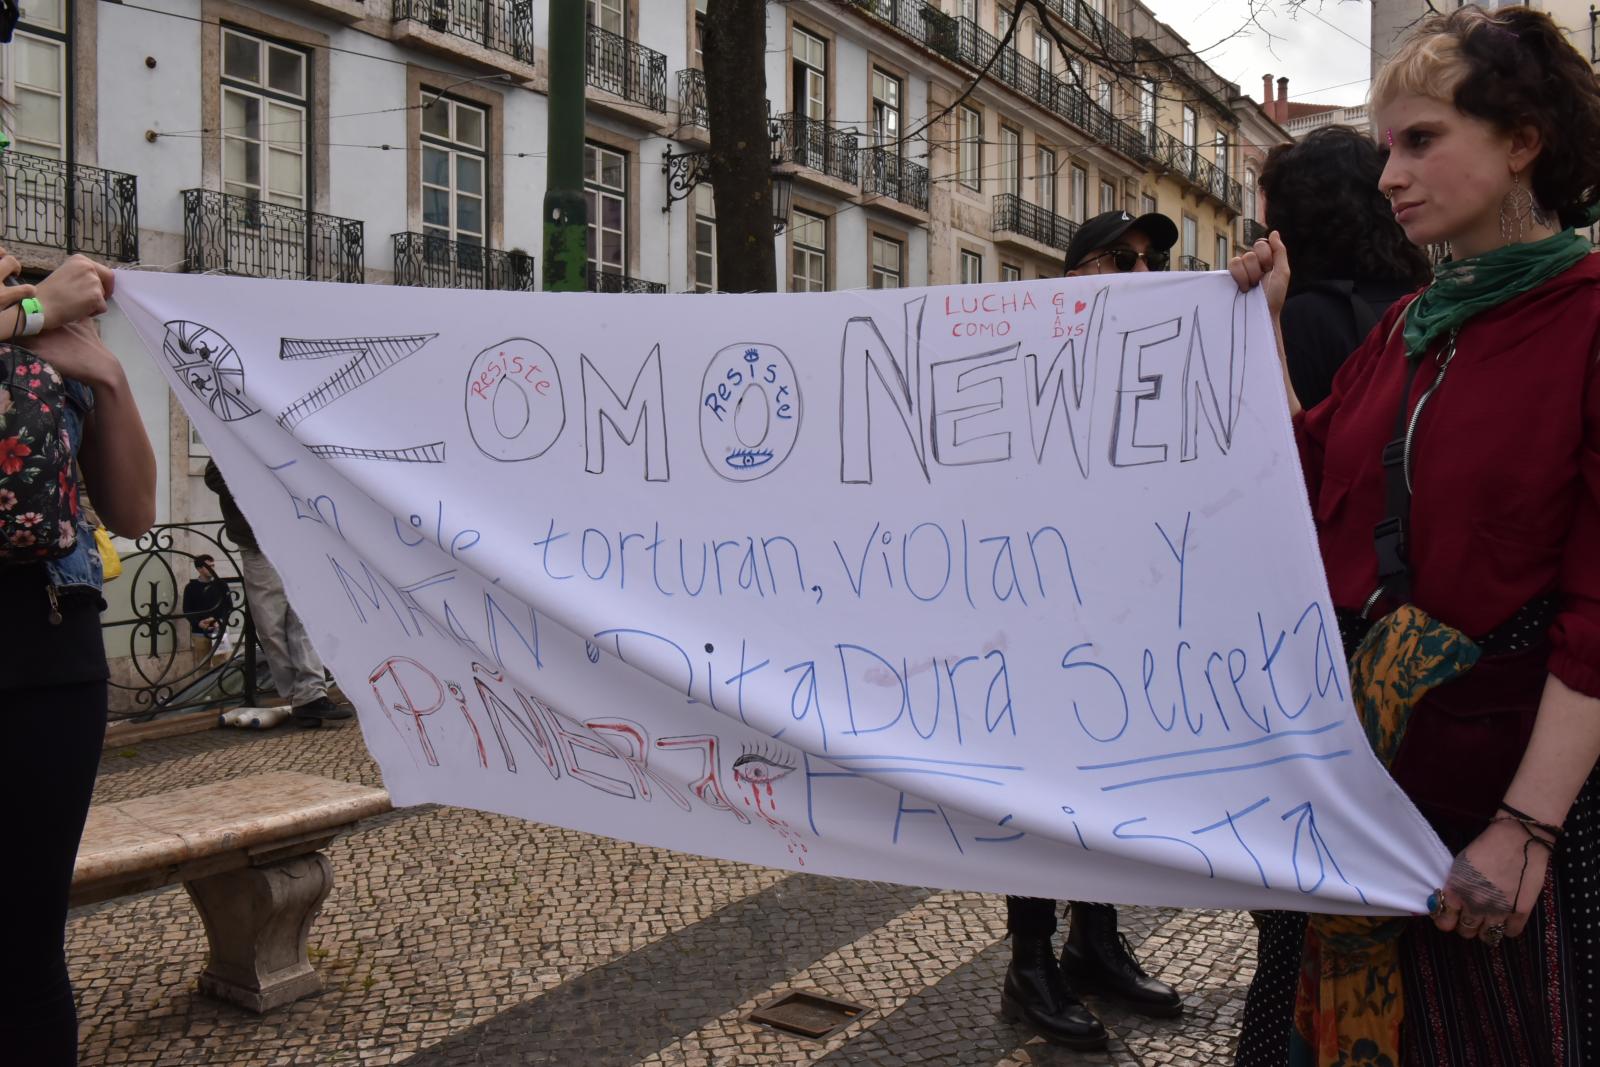 LUCHA
COMO
GLADYS
ZOMO NEWEN
Resiste
Resiste
En torturan, violan y
MATAN DitaDura Secreta
PiÑERA
FAsisTa